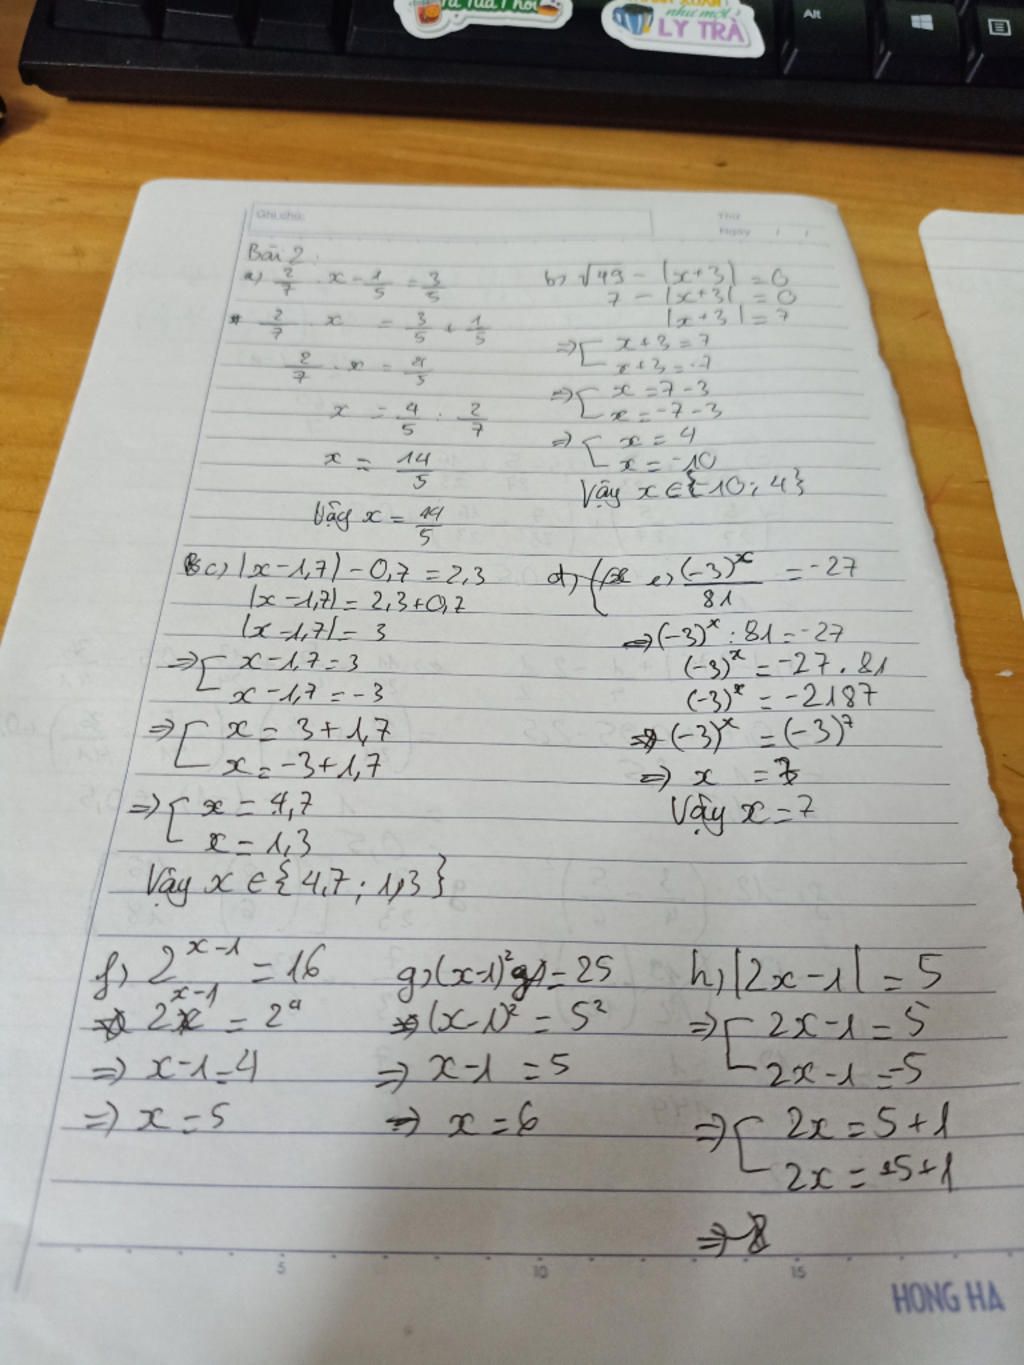 như một
LY TRÀ
Alt
Ghi chú:
Thứ
Ngày / /
Bài 2:
a) 2/7 . x - 1/5 = 3/5
2/7 . x = 3/5 + 1/5
2/7 . x = 4/5
x = 4/5 : 2/7
x = 14/5
Vậy x = 14/5
b) √49 - |x+3| = 0
7 - |x+3| = 0
|x+3| = 7
=> [ x+3 = 7
x+3 = -7
=> [ x = 7-3
x = -7-3
=> [ x = 4
x = -10
Vậy x ∈ {-10; 4}
c) |x-1,7| - 0,7 = 2,3
|x-1,7| = 2,3+0,7
|x-1,7| = 3
=> [ x-1,7 = 3
x-1,7 = -3
=> [ x = 3+1,7
x = -3+1,7
=> [ x = 4,7
x = 1,3
Vậy x ∈ {4,7; 1,3}
d) e) (-3)^x/81 = -27
=> (-3)^x : 81 = -27
(-3)^x = -27 . 81
(-3)^x = -2187
=> (-3)^x = (-3)^7
=> x = 7
Vậy x = 7
f) 2^(x-1) = 16
2^(x-1) = 2^4
=> x-1 = 4
=> x = 5
g) (x-1)² = 25
(x-1)² = 5²
=> x-1 = 5
=> x = 6
h) |2x-1| = 5
=> [ 2x-1 = 5
2x-1 = -5
=> [ 2x = 5+1
2x = -5+1
=>
5 10 15
HONG HA